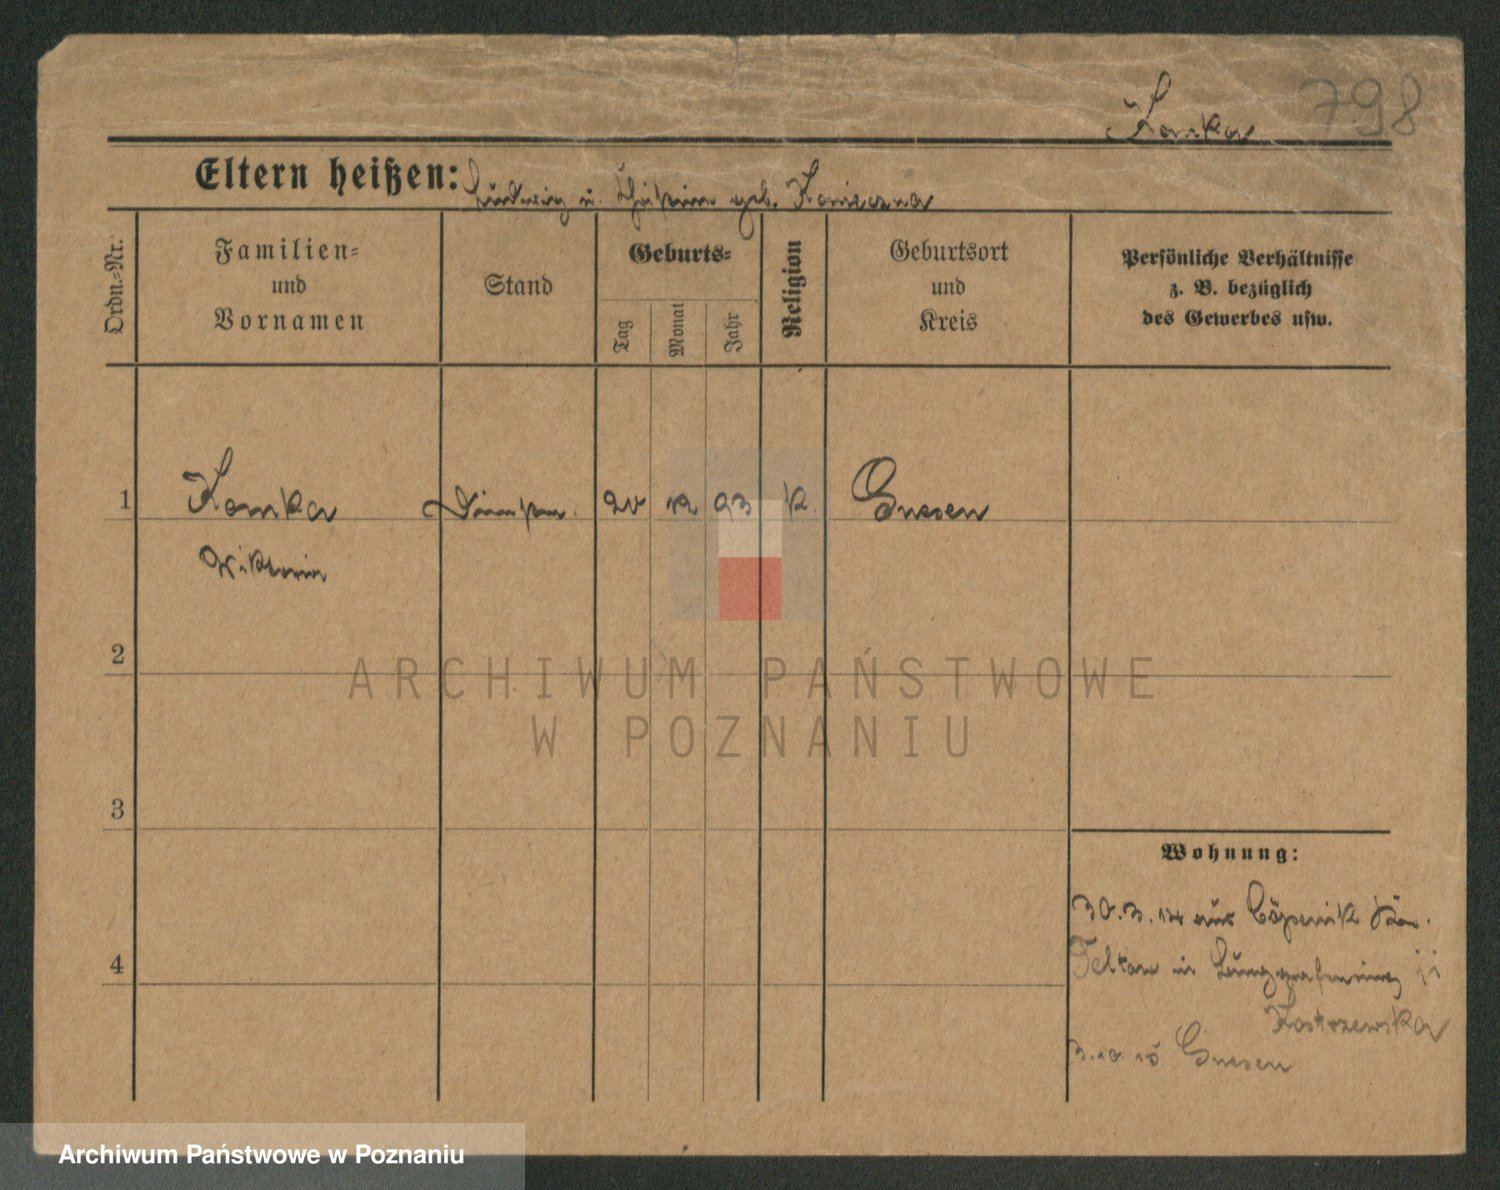 798
Konka
Eltern heißen: Ludwig u. geb. Konieczna
Ordn.-Nr.
Familien-
und
Vornamen
Stand
Geburts-
Tag
Monat
Jahr
Religion
Geburtsort
und
Kreis
Persönliche Verhältnisse
z. B. bezüglich
des Gewerbes usw.
1 Konka 20 12 93 k. Gnesen
Wiktoria
2
3
4
Wohnung:
30.3.14 aus Cöpenik Kr.
Teltow in
Kostrzewska
3.10.15 Gnesen
ARCHIWUM PAŃSTWOWE
W POZNANIU
Archiwum Państwowe w Poznaniu